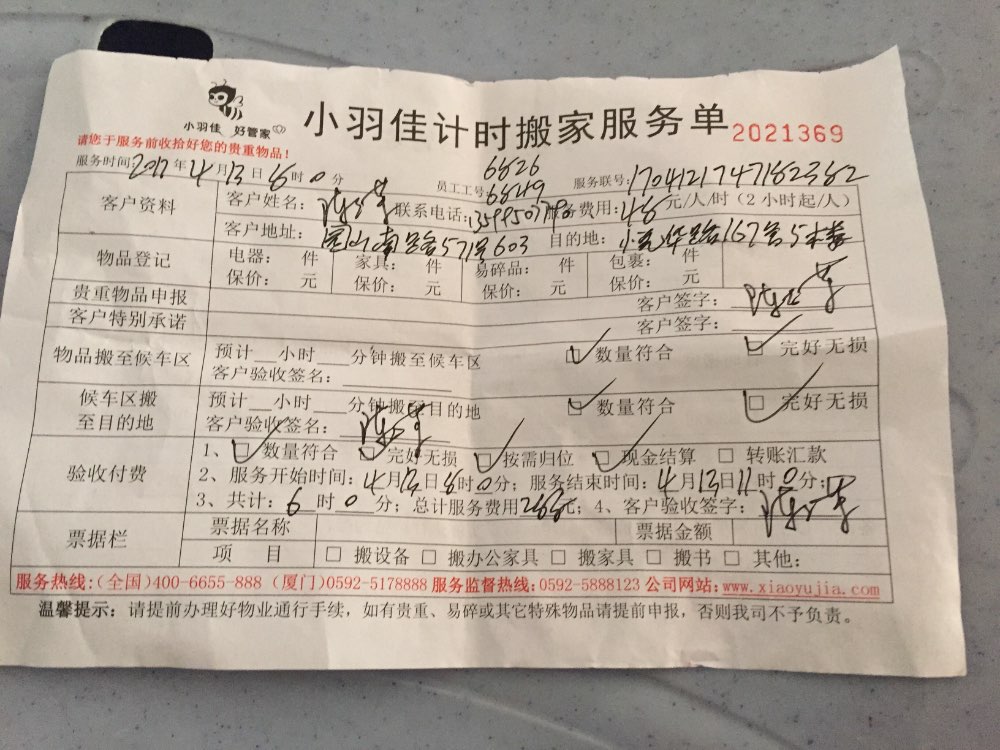 小羽佳 好管家
小羽佳计时搬家服务单 2021369
请您于服务前收拾好您的贵重物品！
服务时间:2017年4月13日8时0分 员工工号: 6826 6849 服务联号:1704121747182382
客户资料 客户姓名: 联系电话: 服务费用:48元/人/时（2小时起/人）
客户地址: 南路571号603 目的地: 华路167号5楼
物品登记 电器: 件 家具: 件 易碎品: 件 包裹: 件
保价: 元 保价: 元 保价: 元 保价: 元
贵重物品申报 客户签字:
客户特别承诺 客户签字:
物品搬至候车区 预计__小时___分钟搬至候车区 ☑数量符合 ☑完好无损
客户验收签名:
候车区搬至目的地 预计__小时___分钟搬至目的地 ☑数量符合 ☑完好无损
客户验收签名:
验收付费 1、☑数量符合 ☑完好无损 ☑按需归位 ☑现金结算 □转账汇款
2、服务开始时间:4月13日8时0分; 服务结束时间:4月13日11时0分;
3、共计:6时0分; 总计服务费用288元; 4、客户验收签字:
票据栏 票据名称 票据金额
项 目 □搬设备 □搬办公家具 □搬家具 □搬书 □其他:
服务热线:(全国)400-6655-888 (厦门)0592-5178888 服务监督热线:0592-5888123 公司网站:www.xiaoyujia.com
温馨提示: 请提前办理好物业通行手续，如有贵重、易碎或其它特殊物品请提前申报，否则我司不予负责。